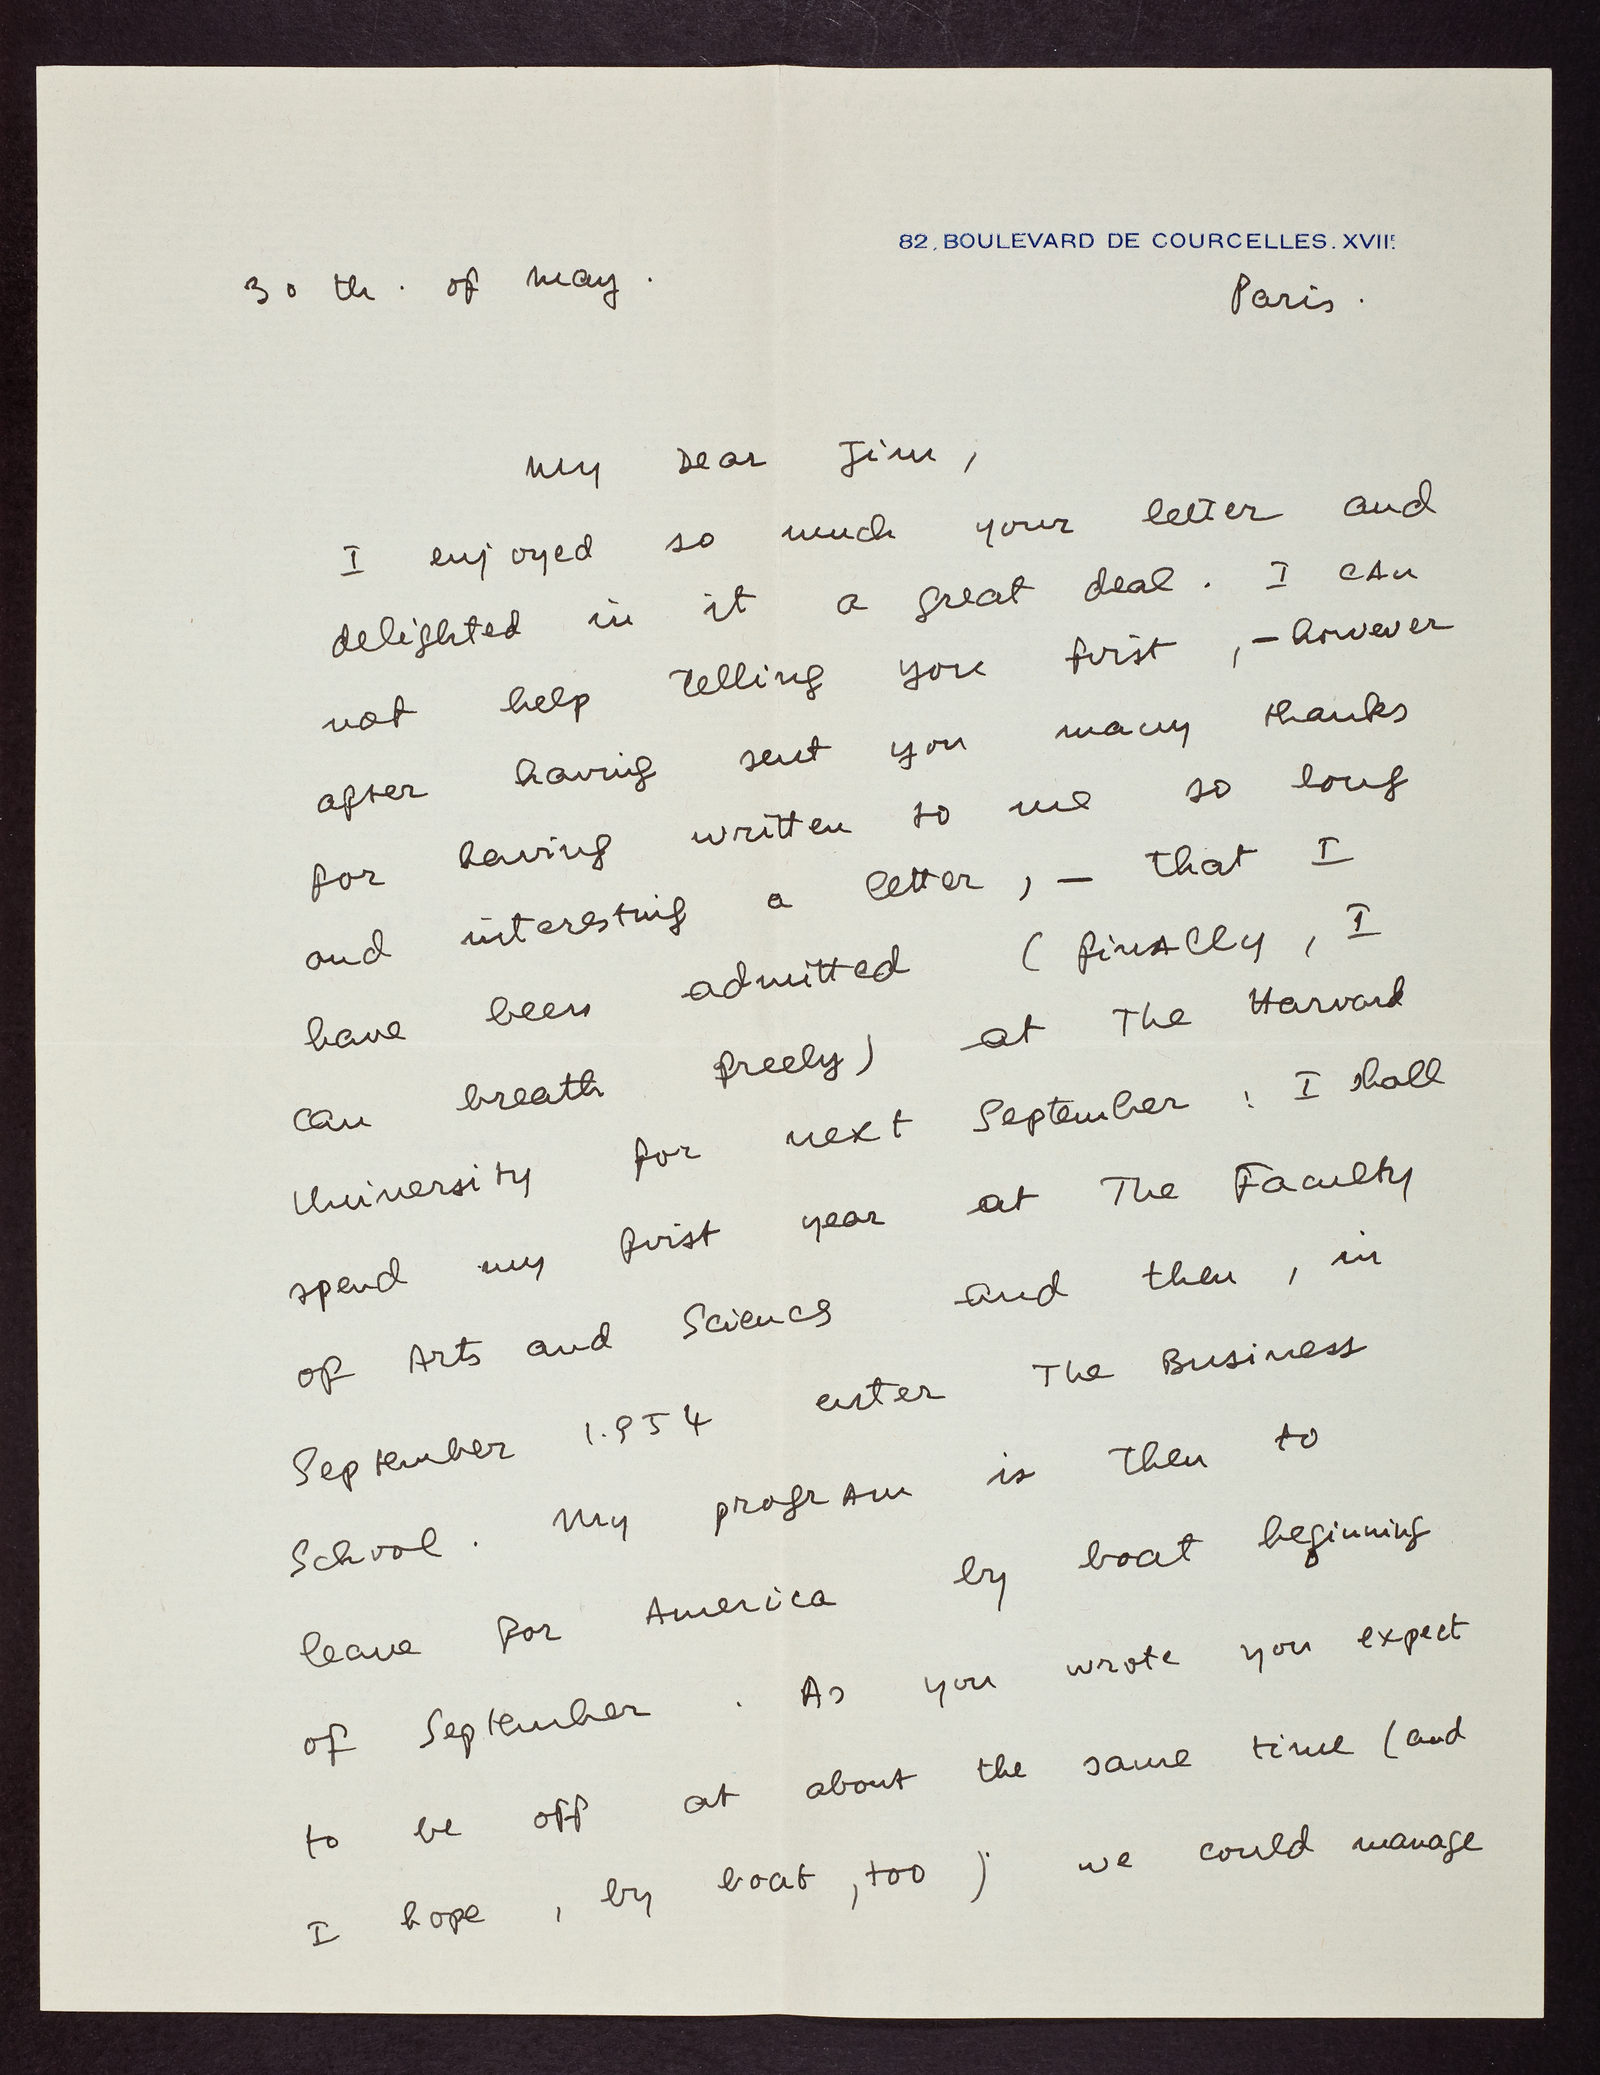 82, BOULEVARD DE COURCELLES. XVIIE
30 th. of May.
Paris.
My Dear Jim,
I enjoyed so much your letter and
delighted in it a great deal. I can
not help telling you first, – however
after having sent you many thanks
for having written to me so long
and interesting a letter, – that I
have been admitted (finally, I
can breath freely) at The Harvard
University for next September : I shall
spend my first year at The Faculty
of Arts and Sciences and then, in
September 1.954 enter The Business
School. My program is then to
leave for America by boat beginning
of September. As you wrote you expect
to be off at about the same time (and
I hope, by boat, too) we could manage